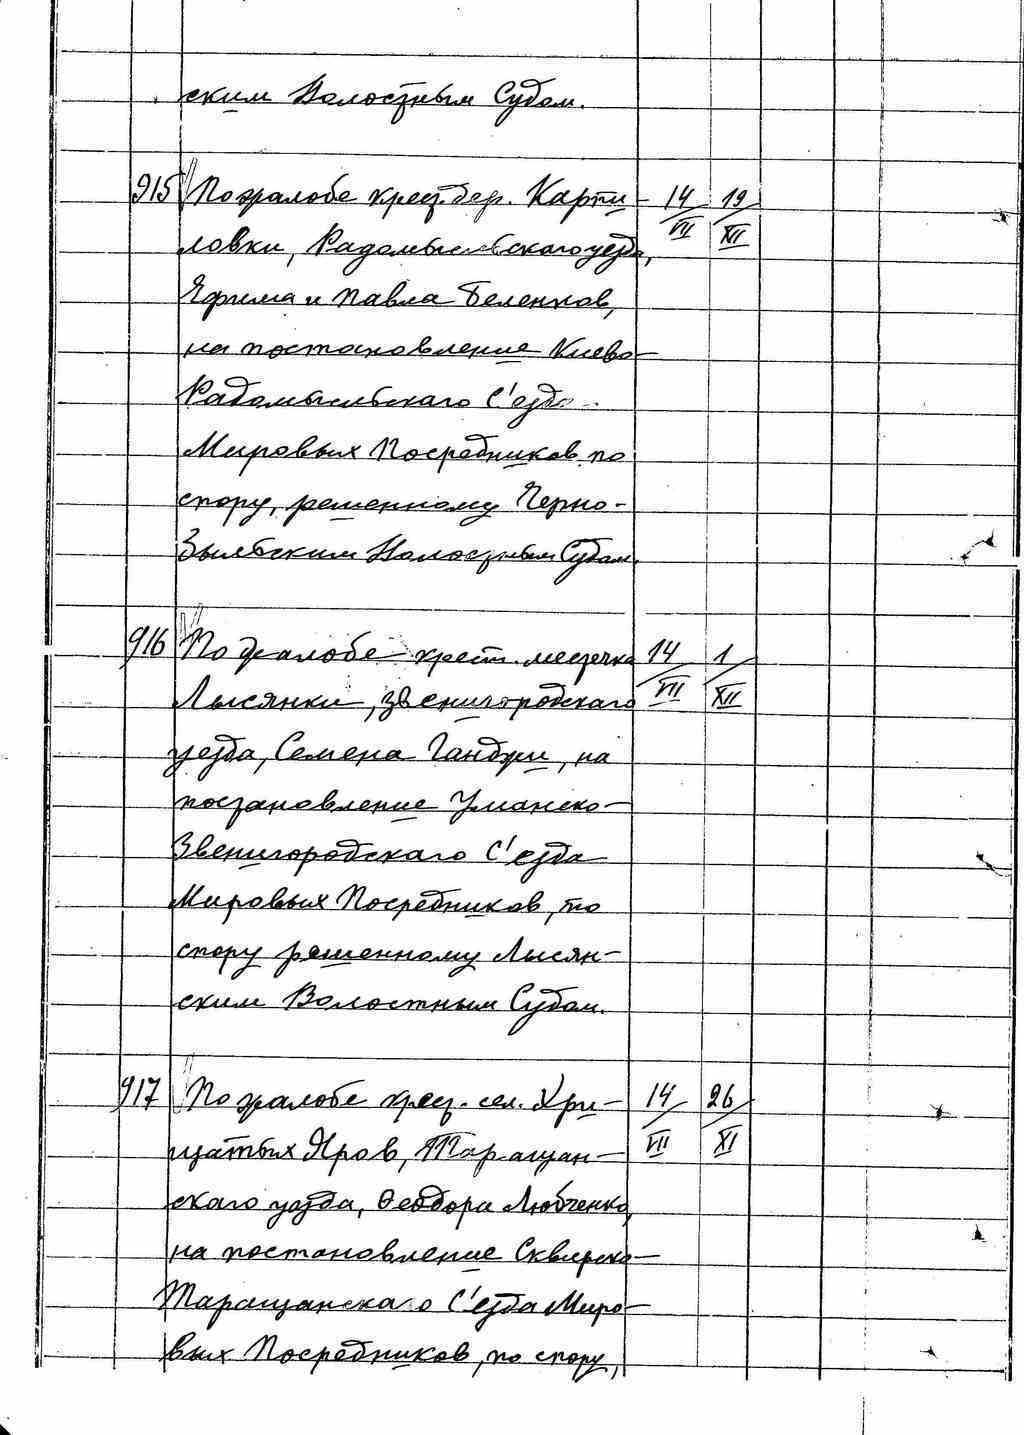 ским Волостным Судом.
915 По жалобе крест. дер. Карпи- 14/VII 19/XII
ловки, Радомысльскаго уезда,
Ефима и Павла Беленков,
на постановление Киево-
Радомысльскаго С'езда
Мировых Посредников по
спору, решенному Черно-
быльским Волостным Судом.
916 По жалобе крест. местечка 14/VII 1/XII
Лысянки, Звенигородскаго
уезда, Семена Ганджи, на
постановление Уманско-
Звенигородскаго С'езда
Мировых Посредников, по
спору решенному Лысян-
ским Волостным Судом.
917 По жалобе крест. сел. Хри- 14/VII 26/XI
щатых Яров, Таращан-
скаго уезда, Феодора Любченко,
на постановление Сквирско-
Таращанскаго С'езда Миро-
вых Посредников, по спору,